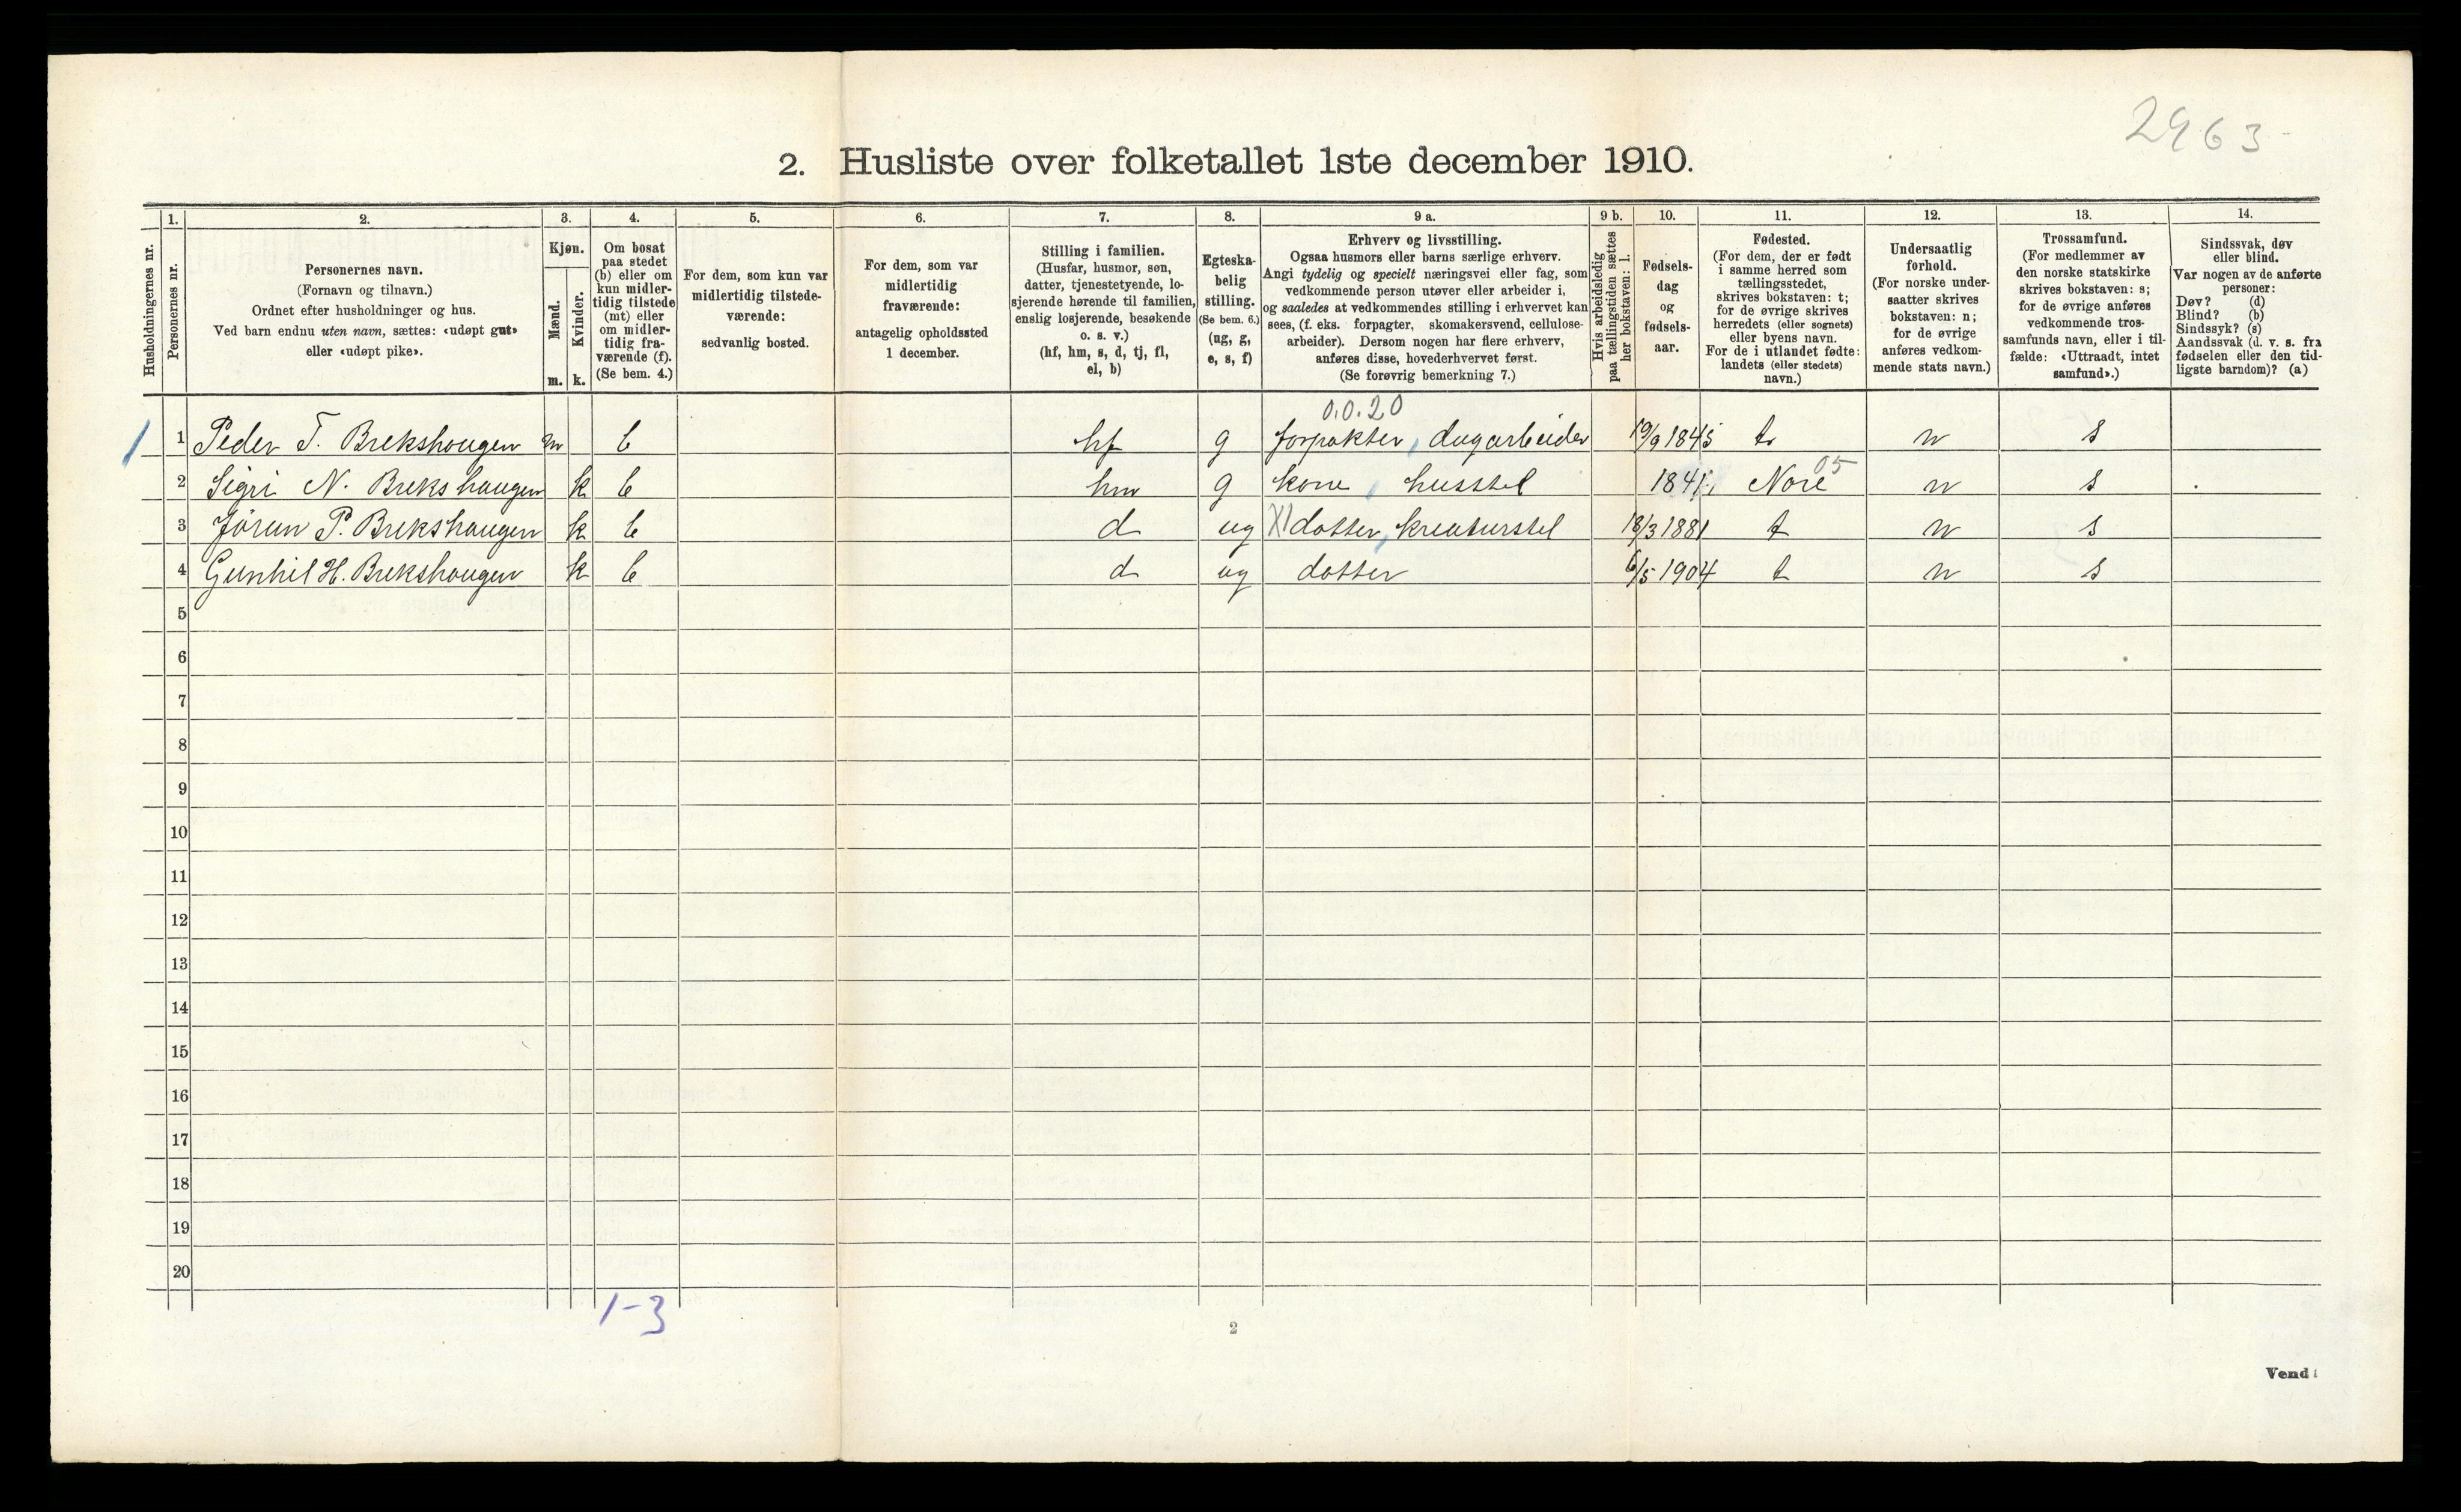 2963
2. Husliste over folketallet 1ste december 1910.
Husholdningernes nr.
1. Personernes nr.
2. Personernes navn.
(Fornavn og tilnavn.)
Ordnet efter husholdninger og hus.
Ved barn endnu uten navn, sættes: «udøpt gut»
eller «udøpt pike».
3. Kjøn.
Mænd. m.
Kvinder. k.
4. Om bosat
paa stedet
(b) eller om
kun midler-
tidig tilstede
(mt) eller
om midler-
tidig fra-
værende (f).
(Se bem. 4.)
5. For dem, som kun var
midlertidig tilstede-
værende:
sedvanlig bosted.
6. For dem, som var
midlertidig
fraværende:
antagelig opholdssted
1 december.
7. Stilling i familien.
(Husfar, husmor, søn,
datter, tjenestetyende, lo-
sjerende hørende til familien,
enslig losjerende, besøkende
o. s. v.)
(hf, hm, s, d, tj, fl,
el, b)
8. Egteska-
belig
stilling.
(Se bem. 6.)
(ug, g,
e, s, f)
9 a. Erhverv og livsstilling.
Ogsaa husmors eller barns særlige erhverv.
Angi tydelig og specielt næringsvei eller fag, som
vedkommende person utøver eller arbeider i,
og saaledes at vedkommendes stilling i erhvervet kan
sees, (f. eks. forpagter, skomakersvend, cellulose-
arbeider). Dersom nogen har flere erhverv,
anføres disse, hovederhvervet først.
(Se forøvrig bemerkning 7.)
9 b. Hvis arbeidsledig
paa tællingstiden sættes
her bokstaven: l.
10. Fødsels-
dag
og
fødsels-
aar.
11. Fødested.
(For dem, der er født
i samme herred som
tællingsstedet,
skrives bokstaven: t;
for de øvrige skrives
herredets (eller sognets)
eller byens navn.
For de i utlandet fødte:
landets (eller stedets)
navn.)
12. Undersaatlig
forhold.
(For norske under-
saatter skrives
bokstaven: n;
for de øvrige
anføres vedkom-
mende stats navn.)
13. Trossamfund.
(For medlemmer av
den norske statskirke
skrives bokstaven: s;
for de øvrige anføres
vedkommende tros-
samfunds navn, eller i til-
fælde: «Uttraadt, intet
samfund».)
14. Sindssvak, døv
eller blind.
Var nogen av de anførte
personer:
Døv? (d)
Blind? (b)
Sindssyk? (s)
Aandssvak (d. v. s. fra
fødselen eller den tid-
ligste barndom)? (a)
0.0.20
1 1 Peder T. Brekshaugen m b hf g forpakter, dagarbeider 19/9 1845 t n s
05
2 Sigri N. Brekshaugen k b hm g kone, husstel 1841 Nore n s
3 Jörun P. Brekshaugen k b d ug XI datter, kreaturstel 18/3 1881 t n s
4 Gunhil H. Brekshaugen k b d ug datter 6/5 1904 t n s
5
6
7
8
9
10
11
12
13
14
15
16
17
18
19
20
1-3
2
Vend!